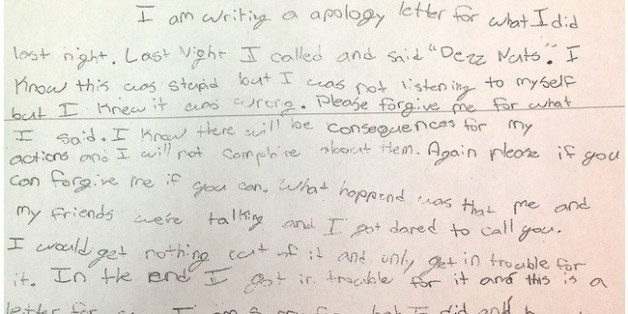 I am writing a apology letter for what I did
last night. Last Night I called and said "Dezz Nuts." I
Know this was stupid but I was not listening to myself
but I Knew it was wrong. Please forgive me for what
I said. I Know there will be consequences for my
actions and I will not complaire about them. Again please if you
can forgive me if you can. What happend was that me and
my friends were talking and I got dared to call you.
I would get nothing out of it and only get in trouble for
it. In the end I got in trouble for it and this is a
letter for I did and